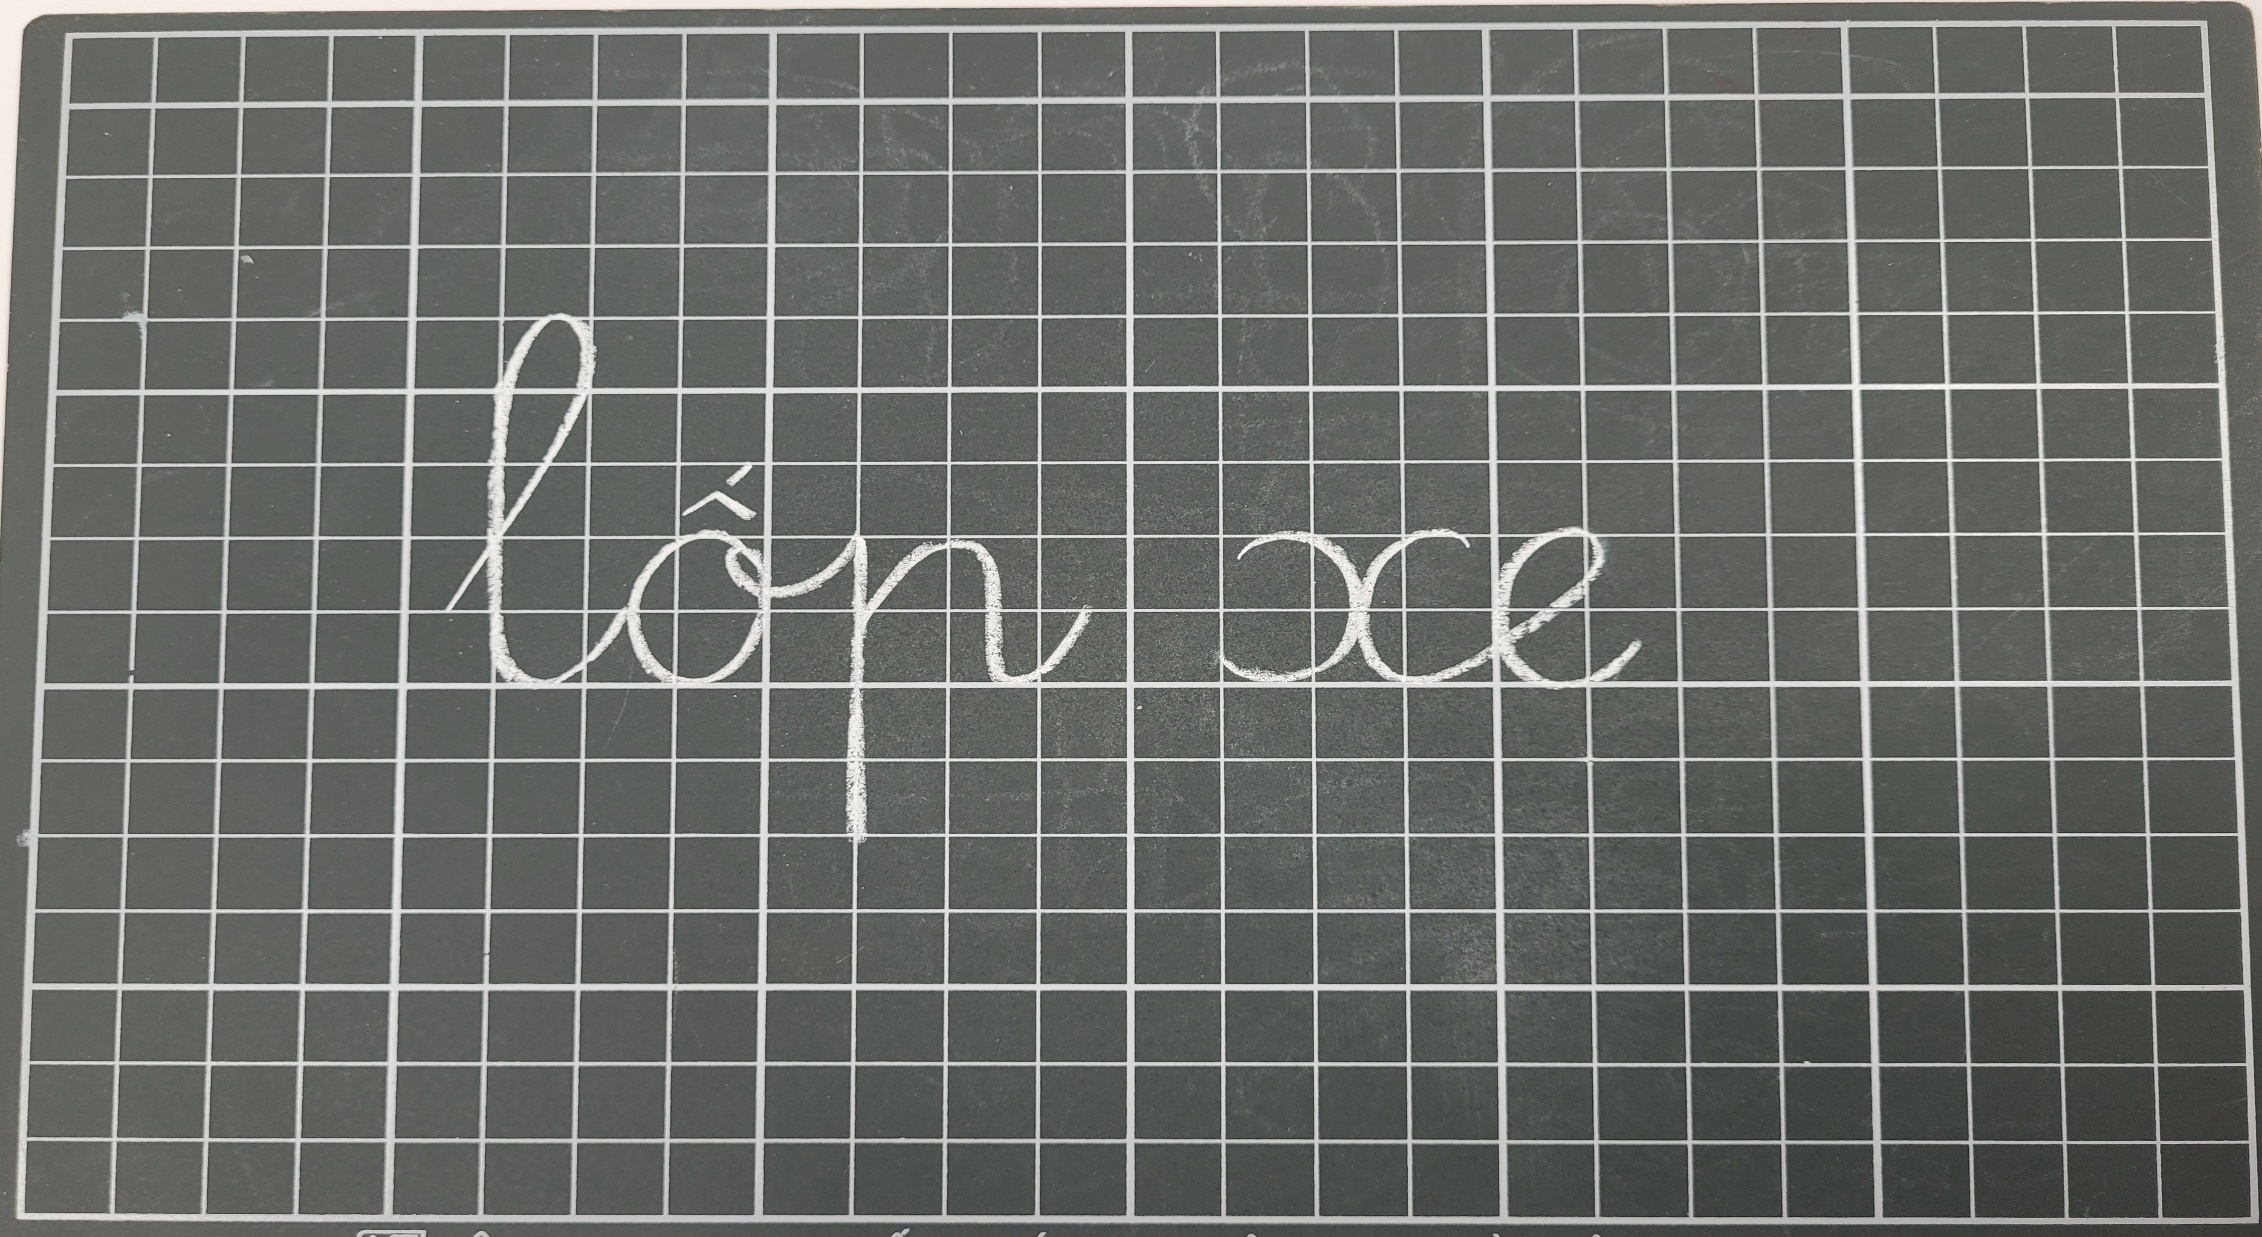 lốp xe